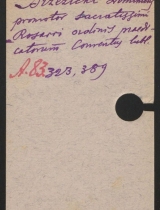 Brzezicki Dominicus
promotor Sacratissimi
Rosarii ordinis praedi-
catorum. Conventus Lubl.
A. 83. 323, 389